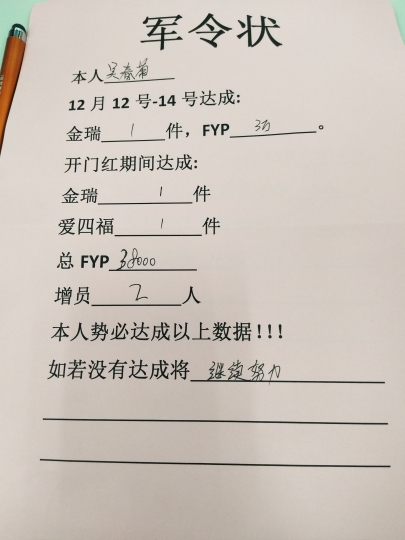 军令状
本人吴春菊
12月12号-14号达成:
金瑞1件，FYP3万。
开门红期间达成:
金瑞1件
爱四福1件
总FYP38000
增员2人
本人势必达成以上数据!!!
如若没有达成将继续努力